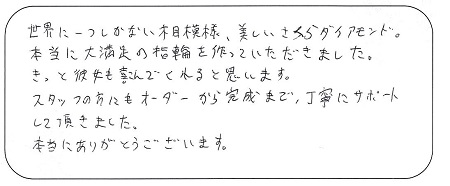 世界に一つしかない木目模様、美しいさくらダイアモンド。
本当に大満足の指輪を作っていただきました。
きっと彼女も喜んでくれると思います。
スタッフの方にもオーダーから完成まで、丁寧にサポート
して頂きました。
本当にありがとうございます。